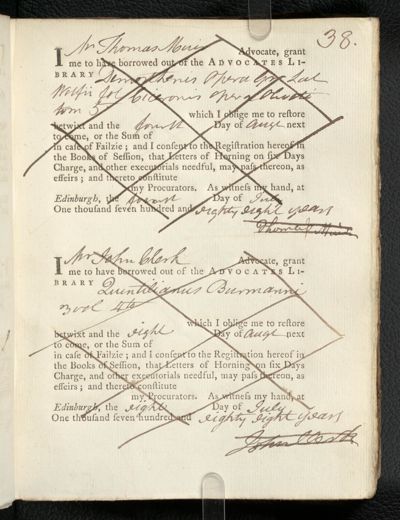 38.
I Mr Thomas Muir Advocate, grant
me to have borrowed out of the ADVOCATES LI-
BRARY Demosthenes Opera Gr. Lat
Wolfii fol Ciceronis opera Oliveti
tom 5 which I oblige me to restore
betwixt and the fourth Day of Augt next
to come, or the Sum of
in case of Failzie; and I consent to the Registration hereof in
the Books of Session, that Letters of Horning on six Days
Charge, and other executorials needful, may pass thereon, as
effeirs; and thereto constitute
my Procurators. As witness my hand, at
Edinburgh, the fourth Day of July
One thousand seven hundred and eighty eight years
Thomas Muir
I Mr John Clerk Advocate, grant
me to have borrowed out of the ADVOCATES LI-
BRARY Quintilianus Burmanni
3 vol 4to
which I oblige me to restore
betwixt and the eight Day of Augt next
to come, or the Sum of
in case of Failzie; and I consent to the Registration hereof in
the Books of Session, that Letters of Horning on six Days
Charge, and other executorials needful, may pass thereon, as
effeirs; and thereto constitute
my Procurators. As witness my hand, at
Edinburgh, the eight Day of July
One thousand seven hundred and eighty eight years
John Clerk